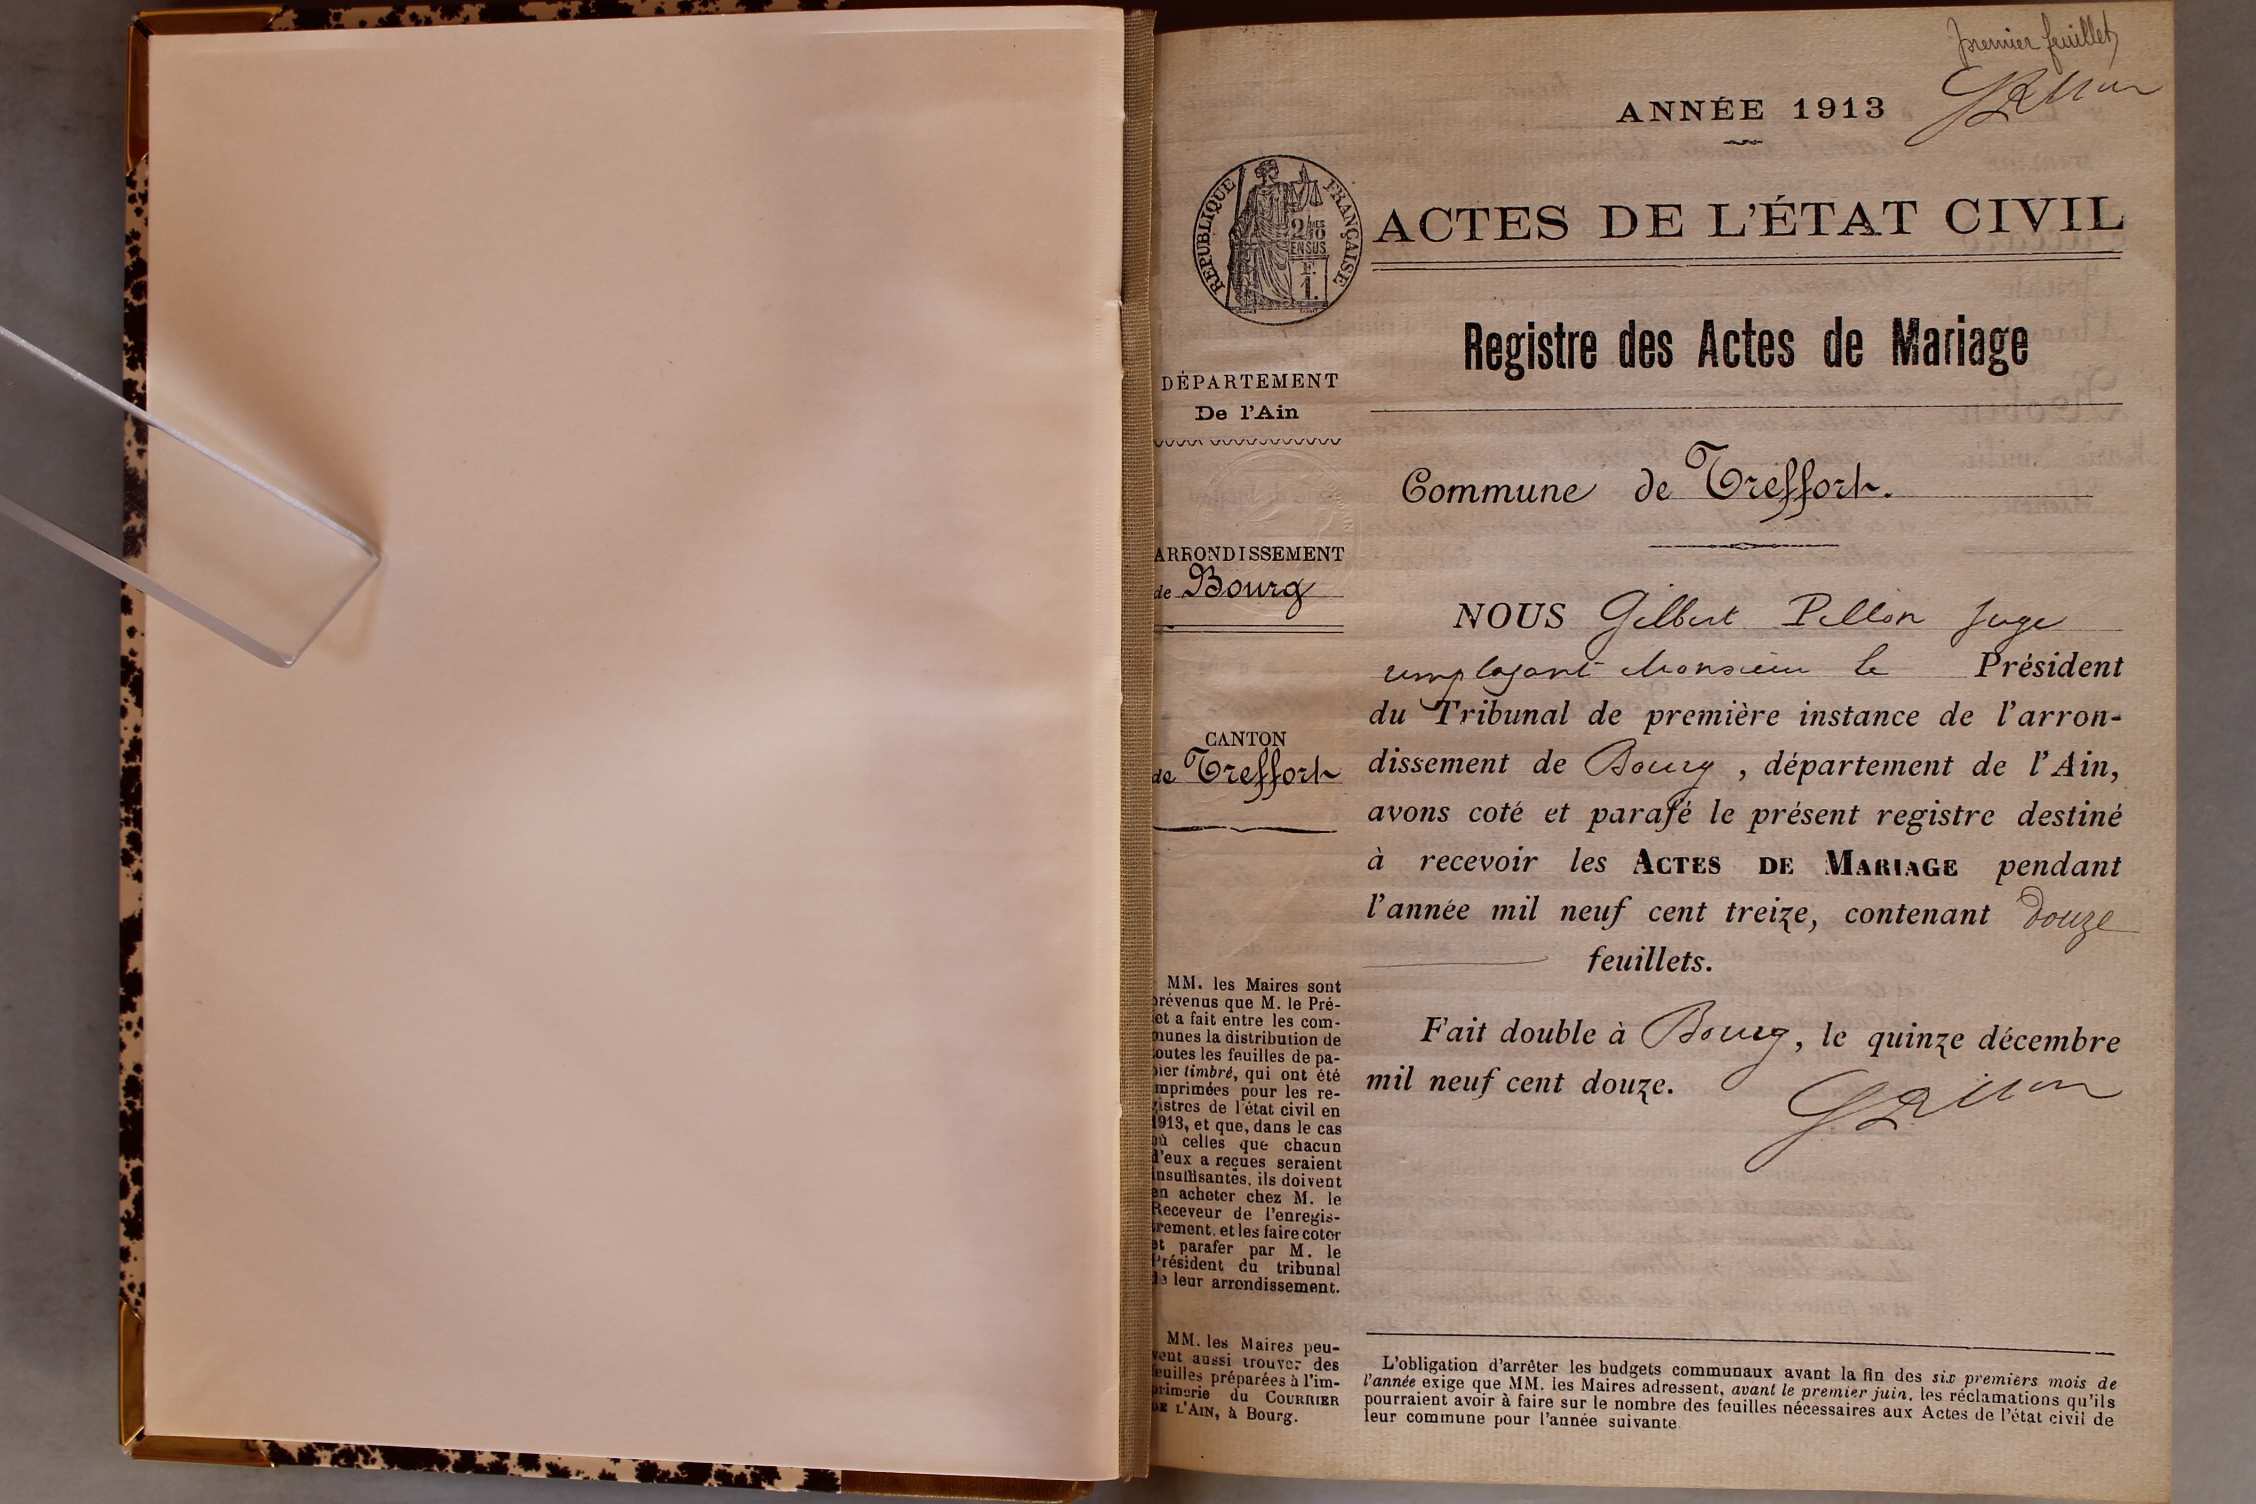 premier feuillet
ANNÉE 1913
RÉPUBLIQUE FRANÇAISE
2/10 MES
EN SUS
F.
1.
ACTES DE L'ÉTAT CIVIL
Registre des Actes de Mariage
DÉPARTEMENT
De l'Ain
Commune de Treffort.
ARRONDISSEMENT
de Bourg
CANTON
de Treffort
NOUS Gilbert Pellon Juge
remplaçant Monsieur le Président
du Tribunal de première instance de l'arron-
dissement de Bourg, département de l'Ain,
avons coté et parafé le présent registre destiné
à recevoir les ACTES DE MARIAGE pendant
l'année mil neuf cent treize, contenant douze
feuillets.
Fait double à Bourg, le quinze décembre
mil neuf cent douze.
MM. les Maires sont
prévenus que M. le Pré-
et a fait entre les com-
munes la distribution de
toutes les feuilles de pa-
pier timbré, qui ont été
imprimées pour les re-
gistres de l'état civil en
1913, et que, dans le cas
où celles que chacun
d'eux a reçues seraient
insuffisantes, ils doivent
en acheter chez M. le
Receveur de l'enregis-
trement, et les faire coter
et parafer par M. le
Président du tribunal
de leur arrondissement.
MM. les Maires peu-
vent aussi trouver des
feuilles préparées à l'im-
primerie du COURRIER
DE L'AIN, à Bourg.
L'obligation d'arrêter les budgets communaux avant la fin des six premiers mois de
l'année exige que MM. les Maires adressent, avant le premier juin, les réclamations qu'ils
pourraient avoir à faire sur le nombre des feuilles nécessaires aux Actes de l'état civil de
leur commune pour l'année suivante.